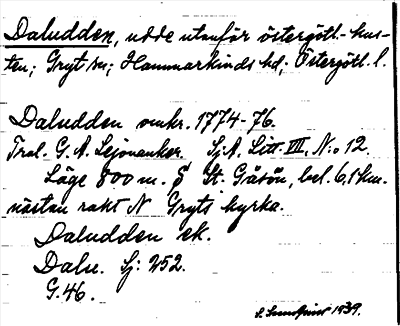 Daludden, udde utanför östergötl.-kus-
ten; Gryt sn; Hammarkinds hd; Östergötl. l.
Daludden omkr. 1774-76.
Tral. G. A. Lejonanker. Sj.A. Litt. VIII, N:o 12.
Läge 800 m. S St. Gåsön, bel. 6,1 km.
nästan rakt N Gryts kyrka.
Daludden ek.
Dalu. Sj: 252.
G.46.
S. Sundqvist 1939.